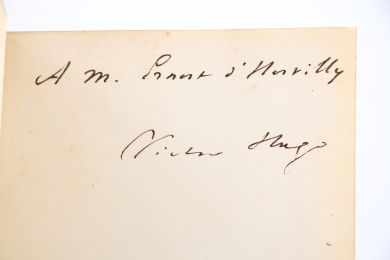 A M. Ernest d'Hervilly
Victor Hugo